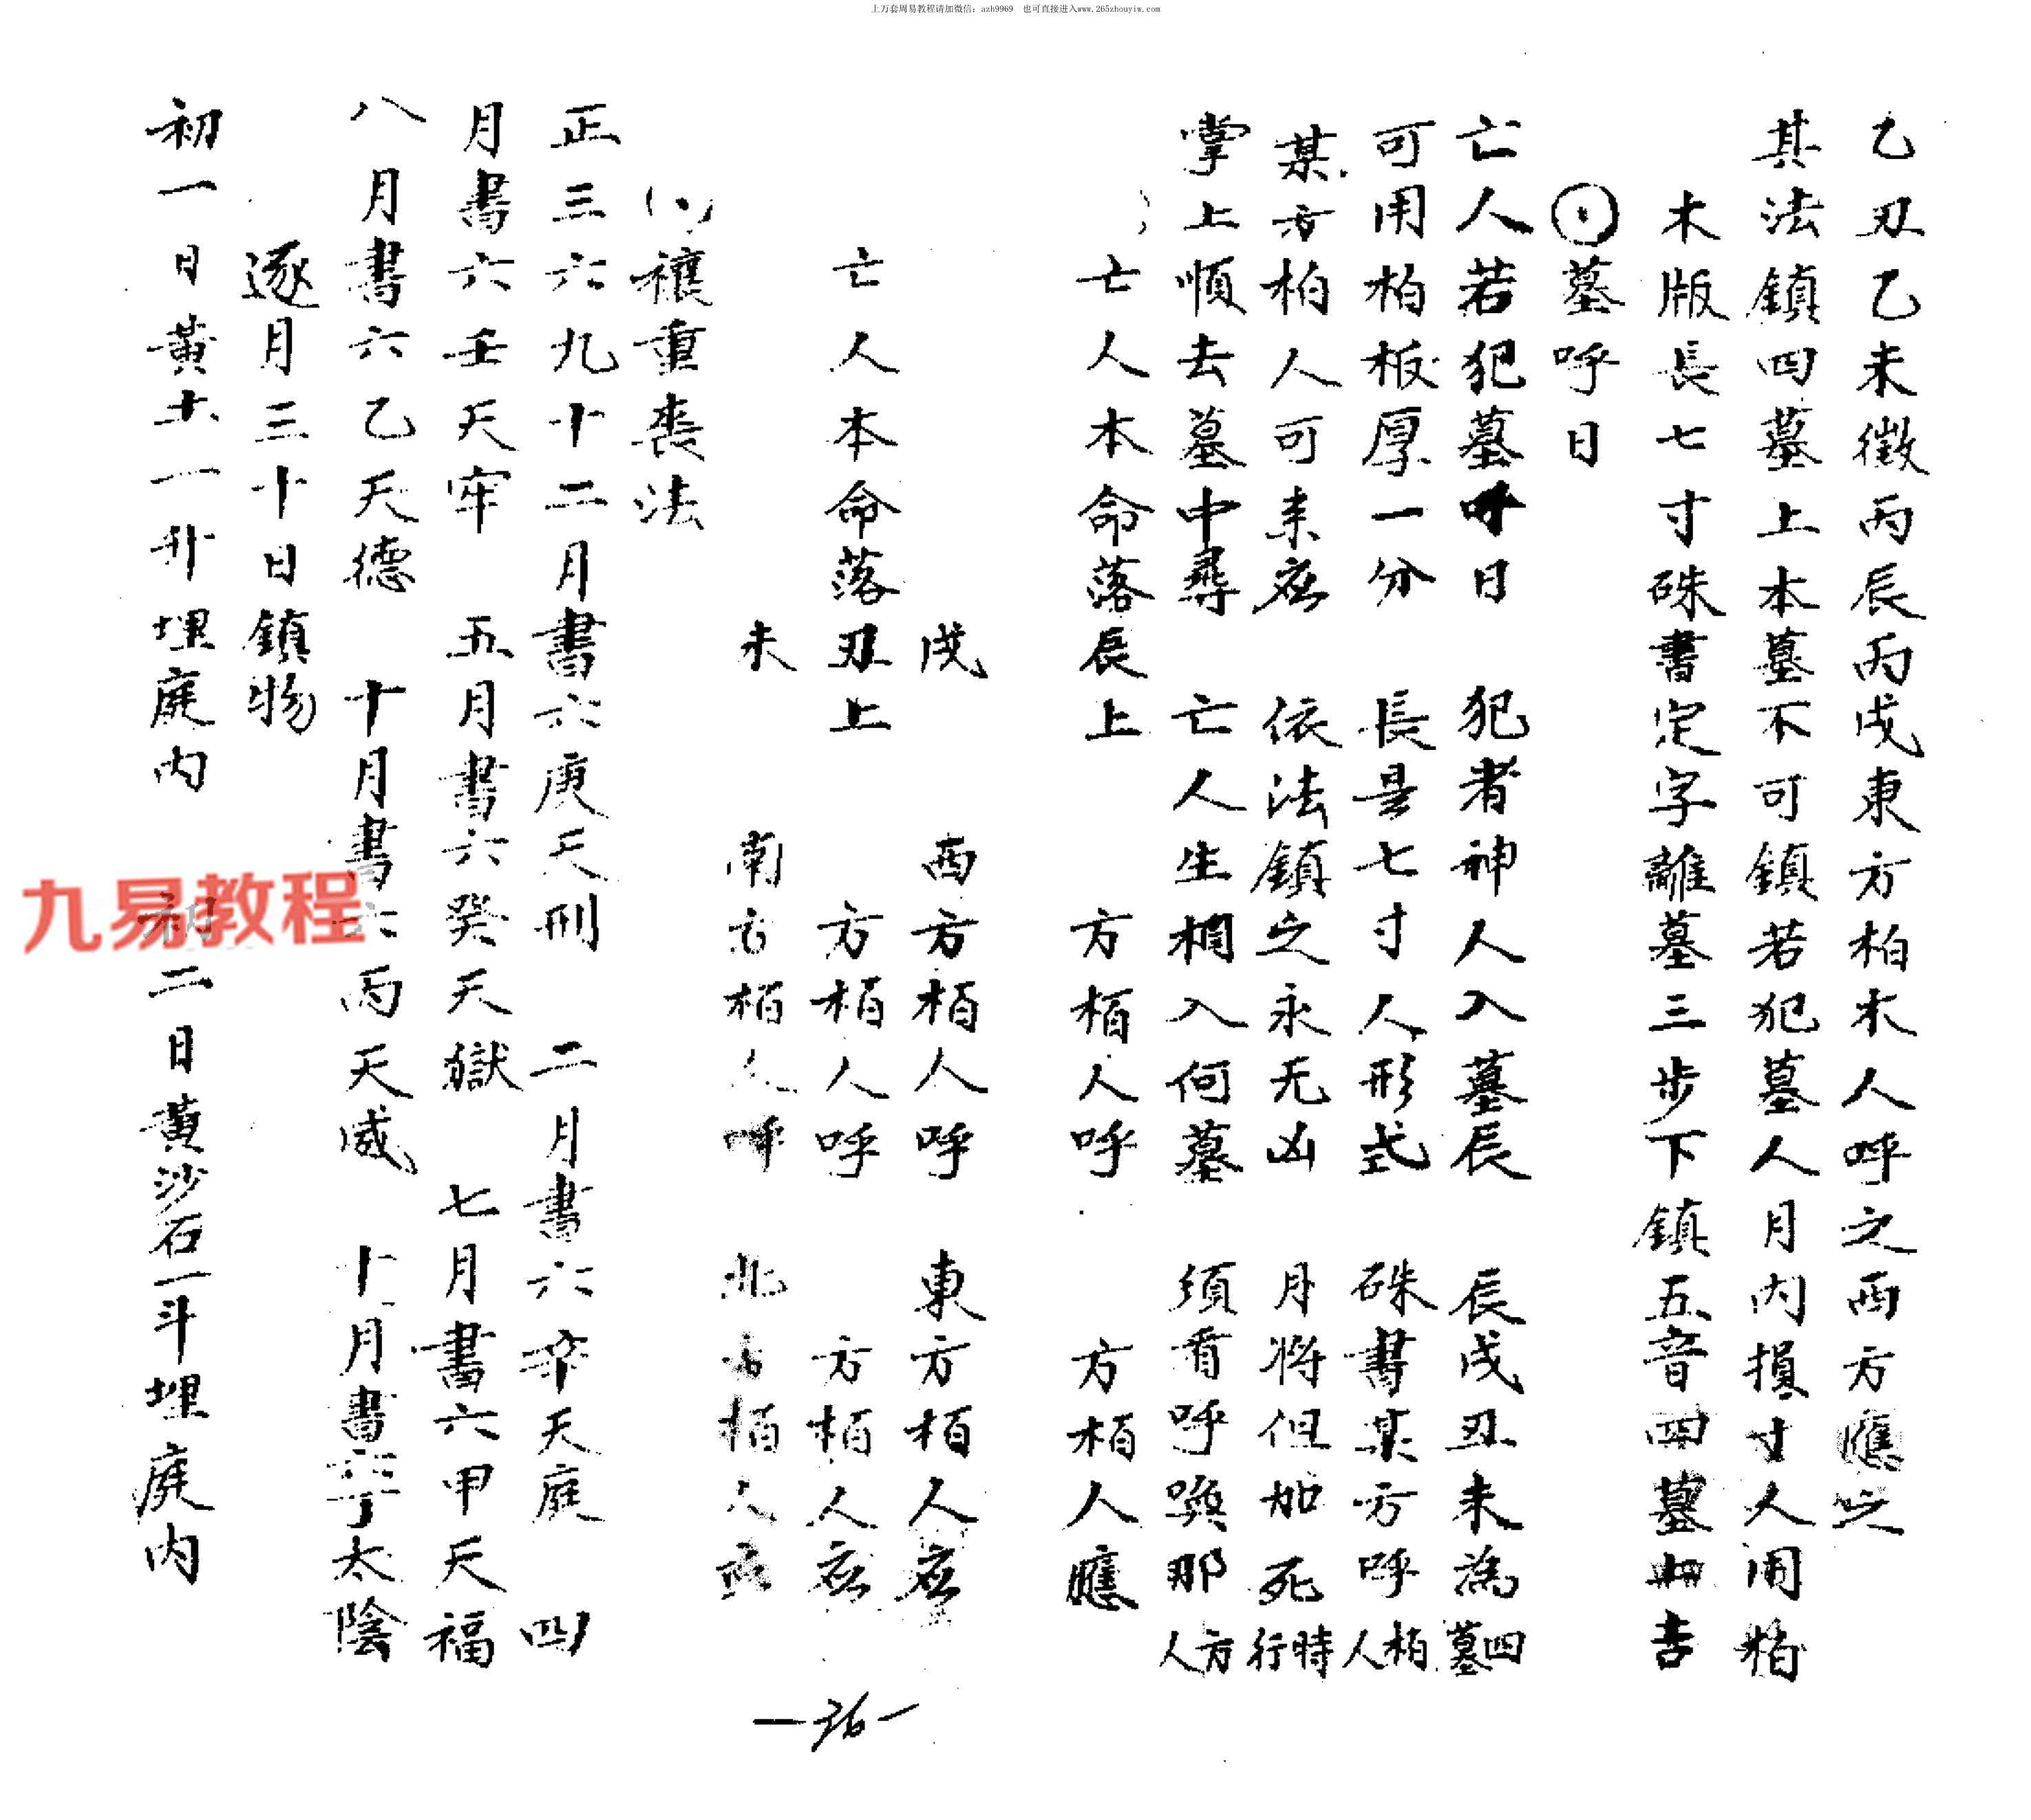 上万套周易教程请加微信：azh9969 也可直接进入www.265zhouyiw.com
乙丑乙未徵丙辰丙戌東方柏木人呼之西方應之
其法鎮四墓上本墓不可鎮若犯墓人月内損寸人用柏
木版長七寸硃書定字離墓三步下鎮五音四墓如吉
墓呼日
亡人若犯墓呼日 犯者神人入墓辰 辰戌丑未為四墓
可用柏板厚一分 長是七寸人形式 硃書某方呼柏人
某方柏人可来应 依法鎮之永无凶 月将但加死時行
掌上順去墓中尋 亡人生相入何墓 須看呼喚那方人
亡人本命落辰上 方栢人呼 方栢人應
戌 西方栢人呼 東方栢人应
亡人本命落丑上 方栢人呼 方栢人应
未 南方栢人呼 北方栢人应
禳重喪法
正三六九十二月書六庚天刑 二月書六辛天庭 四
月書六壬天牢 五月書六癸天獄 七月書六甲天福
八月書六乙天德 十月書六丙天威 十一月書六丁太陰
逐月三十日鎮物
初一日黃土一升埋庭内 初二日黃沙石一斗埋庭内
九易教程
—36—